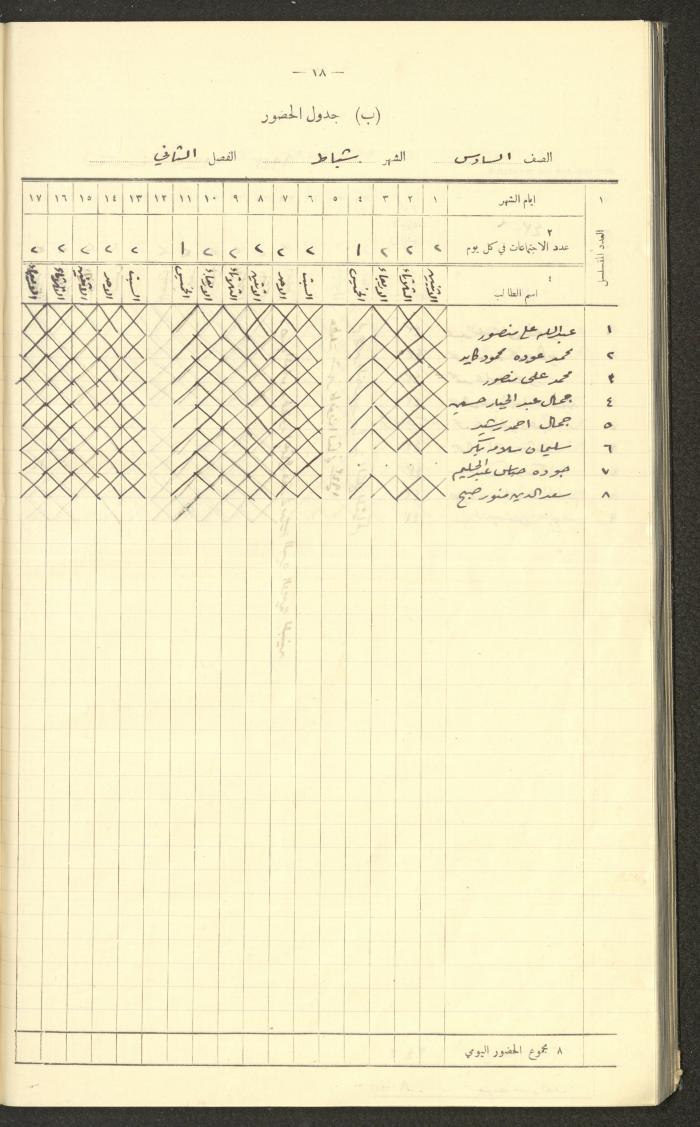 — ١٨ —
(ب) جدول الحضور
الصف السادس الشهر شباط الفصل الثاني
١ ايام الشهر ١ ٢ ٣ ٤ ٥ ٦ ٧ ٨ ٩ ١٠ ١١ ١٢ ١٣ ١٤ ١٥ ١٦ ١٧
العدد المتسلسل
٢
عدد الاجتماعات في كل يوم ٢ ٢ ٢ ١ ٢ ٢ ٢ ٢ ٢ ١ ٢ ٢ ٢ ٢ ٢
٤
اسم الطالب الاثنين الثلاثاء الاربعاء الخميس السبت الاحد الاثنين الثلاثاء الاربعاء الخميس السبت الاحد الاثنين الثلاثاء الاربعاء
١ عبدالله علي منصور
٢ محمد عوده محمود كايد
٣ محمد علي منصور
٤ جمال عبد الجبار حسين
٥ جمال احمد رشيد
٦ سليمان سلامه بكر
٧ جوده عباس عبدالحليم
٨ سعد الدين منور صبح
٨ مجموع الحضور اليومي